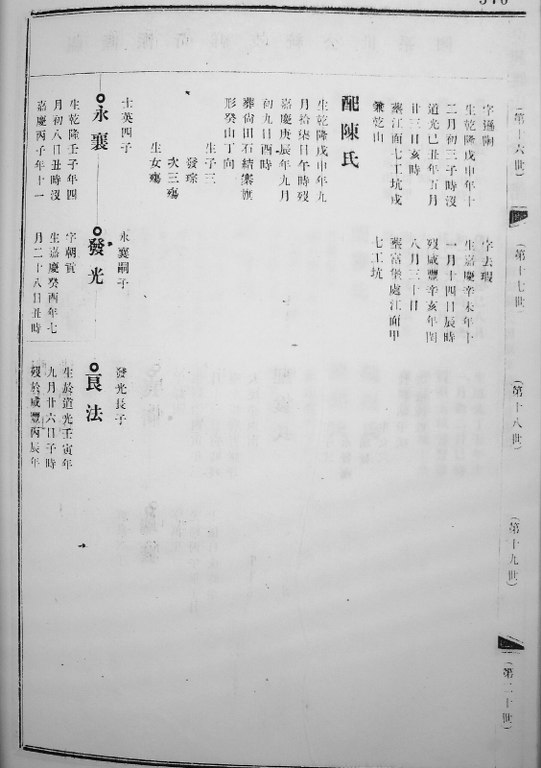 (第十六世)
(第十七世)
(第十八世)
(第十九世)
(第二十世)
生乾隆戊申年十
二月初三子時沒
道光己丑年五月
廿三日亥時
塟江面七工坑戌
兼乾山
配陳氏
生乾隆戊申年九
月拾柒日午時歿
嘉慶庚辰年九月
初九日酉時
形癸山丁向
生子三
發琮
次三殤
生女殤
士英四子
永襄
生乾隆壬子年四
月初八日丑時沒
嘉慶丙子年十一
字去瑕
生嘉慶辛未年十
一月十四日辰時
歿咸豐辛亥年閏
八月三十日
塟富堡處江面甲
七工坑
永襄嗣子
發光
字朝貢
生嘉慶癸酉年七
月二十八日丑時
發光長子
良法
生於道光壬寅年
九月廿六日子時
歿於咸豐丙辰年